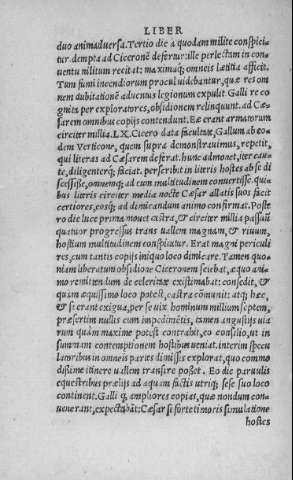 LIBER
duo animaduersa. Tertio die a quodam milite conspici⸗
tur dempta ad Ciceronē defertur: ille perlectam in con⸗
uentu militum recitat: maximaq; omneis lætitia afficit.
Tum fumi incendiorum procul uidebantur, quæ res om
nem dubitationē aduentus legionum expulit. Galli re co
gnita per exploratores, obsidionem relinquunt. ad Cæ⸗
sarem omnibus copijs contendunt. Eæ erant armatorum
circiter millia. LX. Cicero data facultate, Gallum ab eo⸗
dem Verticone, quem supra demonstrauimus, repetit,
qui literas ad Cæsarem deferat. hunc admonet, iter cau⸗
te, diligenterq; faciat. perscribit in literis hosteis ab se di
scessisse, omnemq; ad eum multitudinem conuertisse. qui⸗
bus literis circiter media nocte Cæsar allatis suos facit
certiores, eosq; ad dimicandum animo confirmat. Poste
ro die luce prima mouet castra, & circiter millia passuū
quatuor progressus trans uallem magnam, & riuum,
hostium multitudinem conspicatur. Erat magni periculi
res, cum tantis copijs iniquo loco dimicare. Tamen quo⸗
niam liberatum obsidione Ciceronem sciebat, æquo ani⸗
mo remittendum de celeritate existimabat: consedit, &
quàm æquissimo loco potest, castra cōmunit: atq; hæc,
& si erant exigua, per se uix hominum millium septem,
præsertim nullis cum impedimētis, tamen angustijs uia
rum quàm maxime potest contrahit, eo consilio, ut in
summam contemptionem hostibus ueniat. interim specu
latoribus in omneis parteis dimissis explorat, quo commo
dissime itinere uallem transire posset. Eo die paruulis
equestribus prælijs ad aquam factis utriq; sese suo loco
continent. Galli q̃ ampliores copias, quæ nondum con⸗
uenerant, expectabāt: Cæsar si forte timoris simulatione
hostes